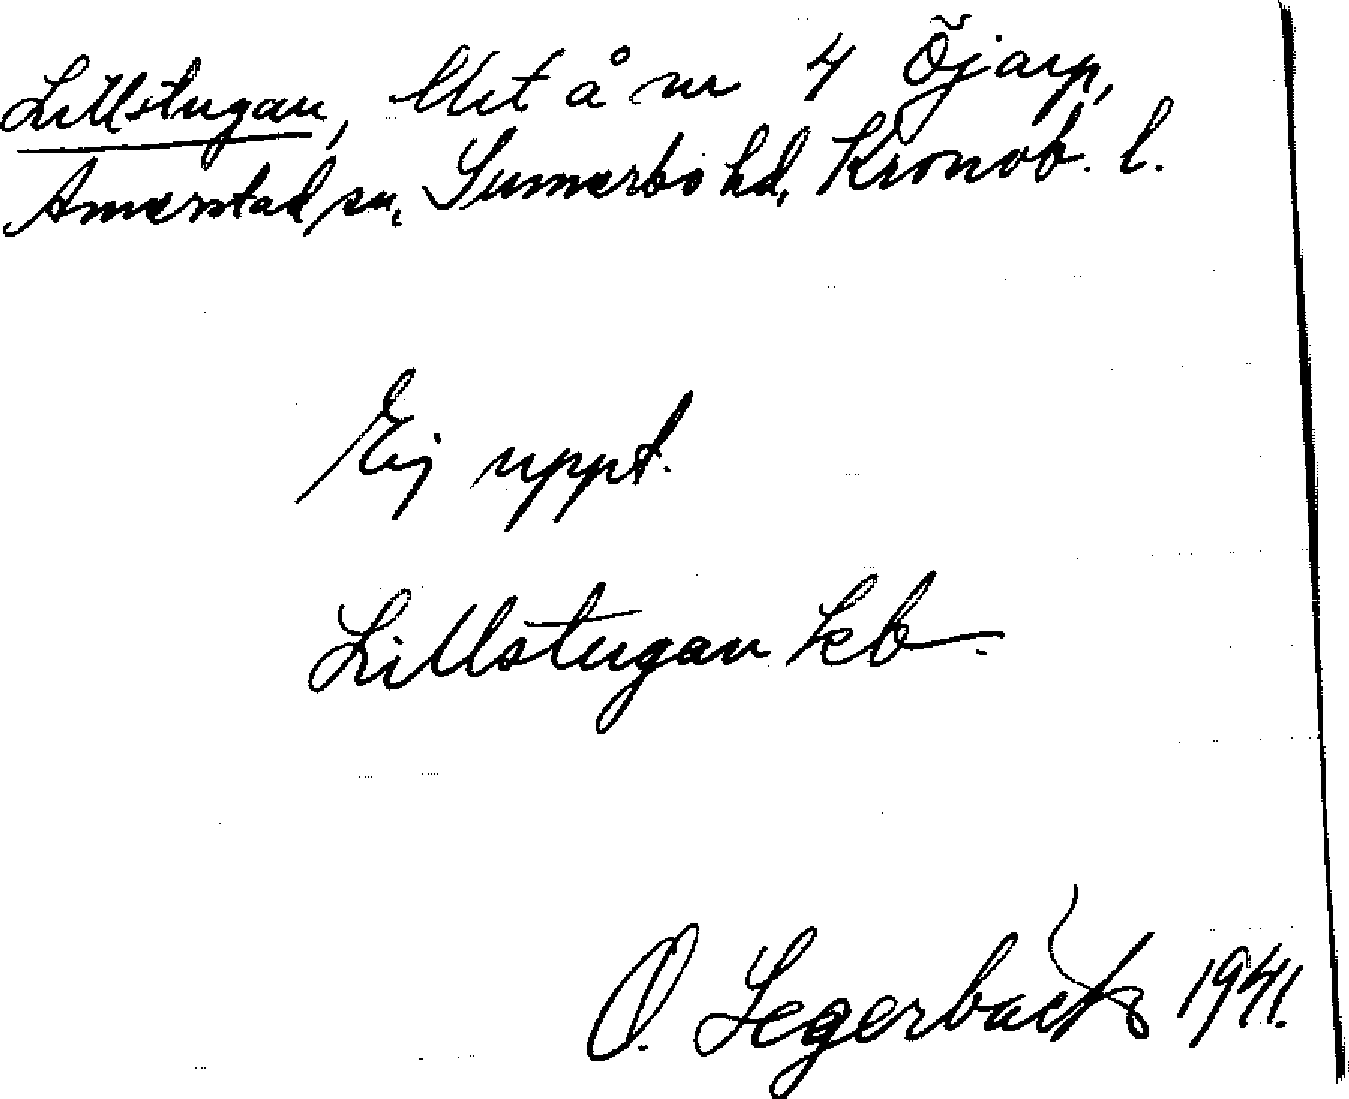 Lillstugan, lht å nr 4 Öjarp,
Annerstad sn, Sunnerbo hd, Kronob. l.
Ej uppt.
Lillstugan kb
O. Segerbäck 1941.